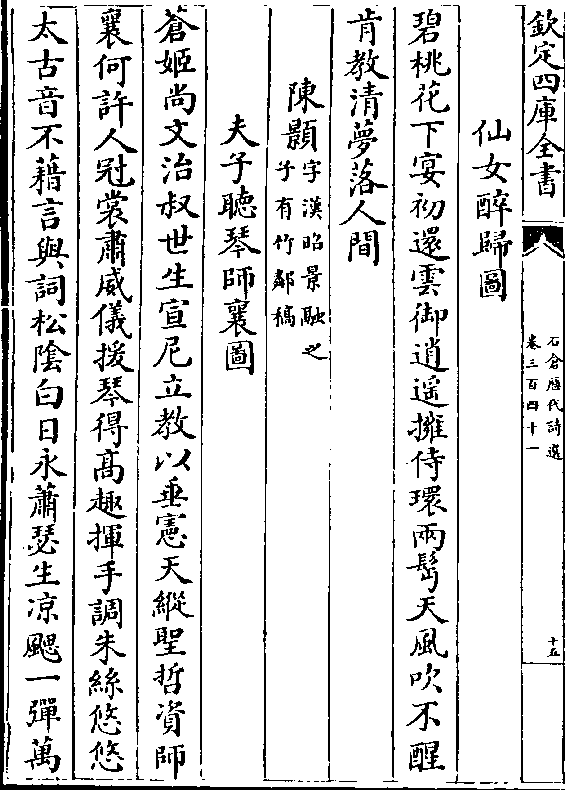 欽定四庫全書
石倉歷代詩選
卷三百四十一
十五
仙女醉歸圖
碧桃花下宴初還雲御逍遥擁侍環兩髩天風吹不醒
肯教清夢落人間
陳顥字漢昭景融之
子有竹鄰稿
夫子聽琴師襄圖
蒼姬尚文治叔世生宣尼立教以垂憲天縱聖哲資師
襄何許人冠裳肅威儀援琴得髙趣揮手調朱絲悠悠
太古音不藉言與詞松陰白日永蕭瑟生凉颸一彈萬